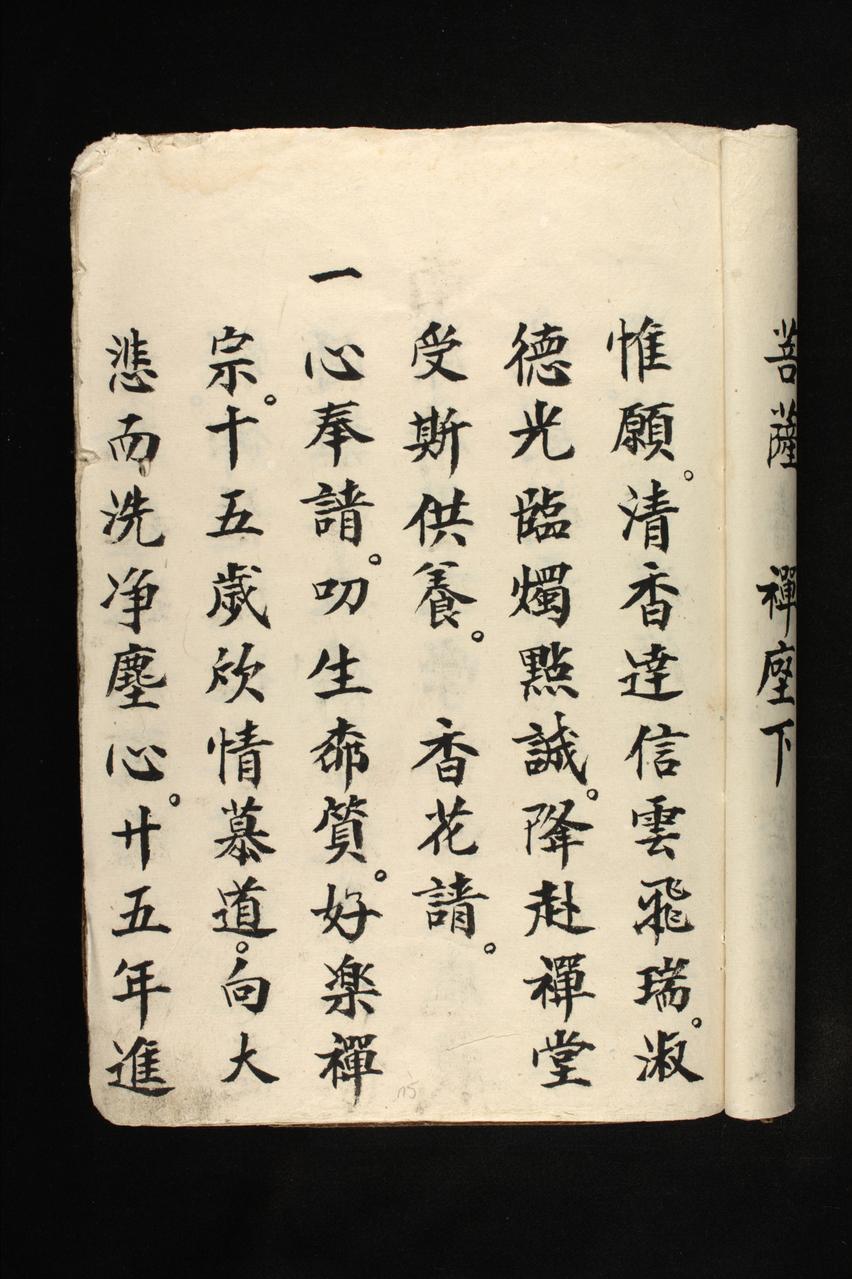 菩薩　禪座下
惟願。清香達信雲飛瑞。淑
德光臨燭點誠。降赴禪堂
受斯供養。　香花請。
一心奉請。叨生 質。好楽禪
宗。十五歲欣情慕道。向大
悲而洗净塵心。廿五年進